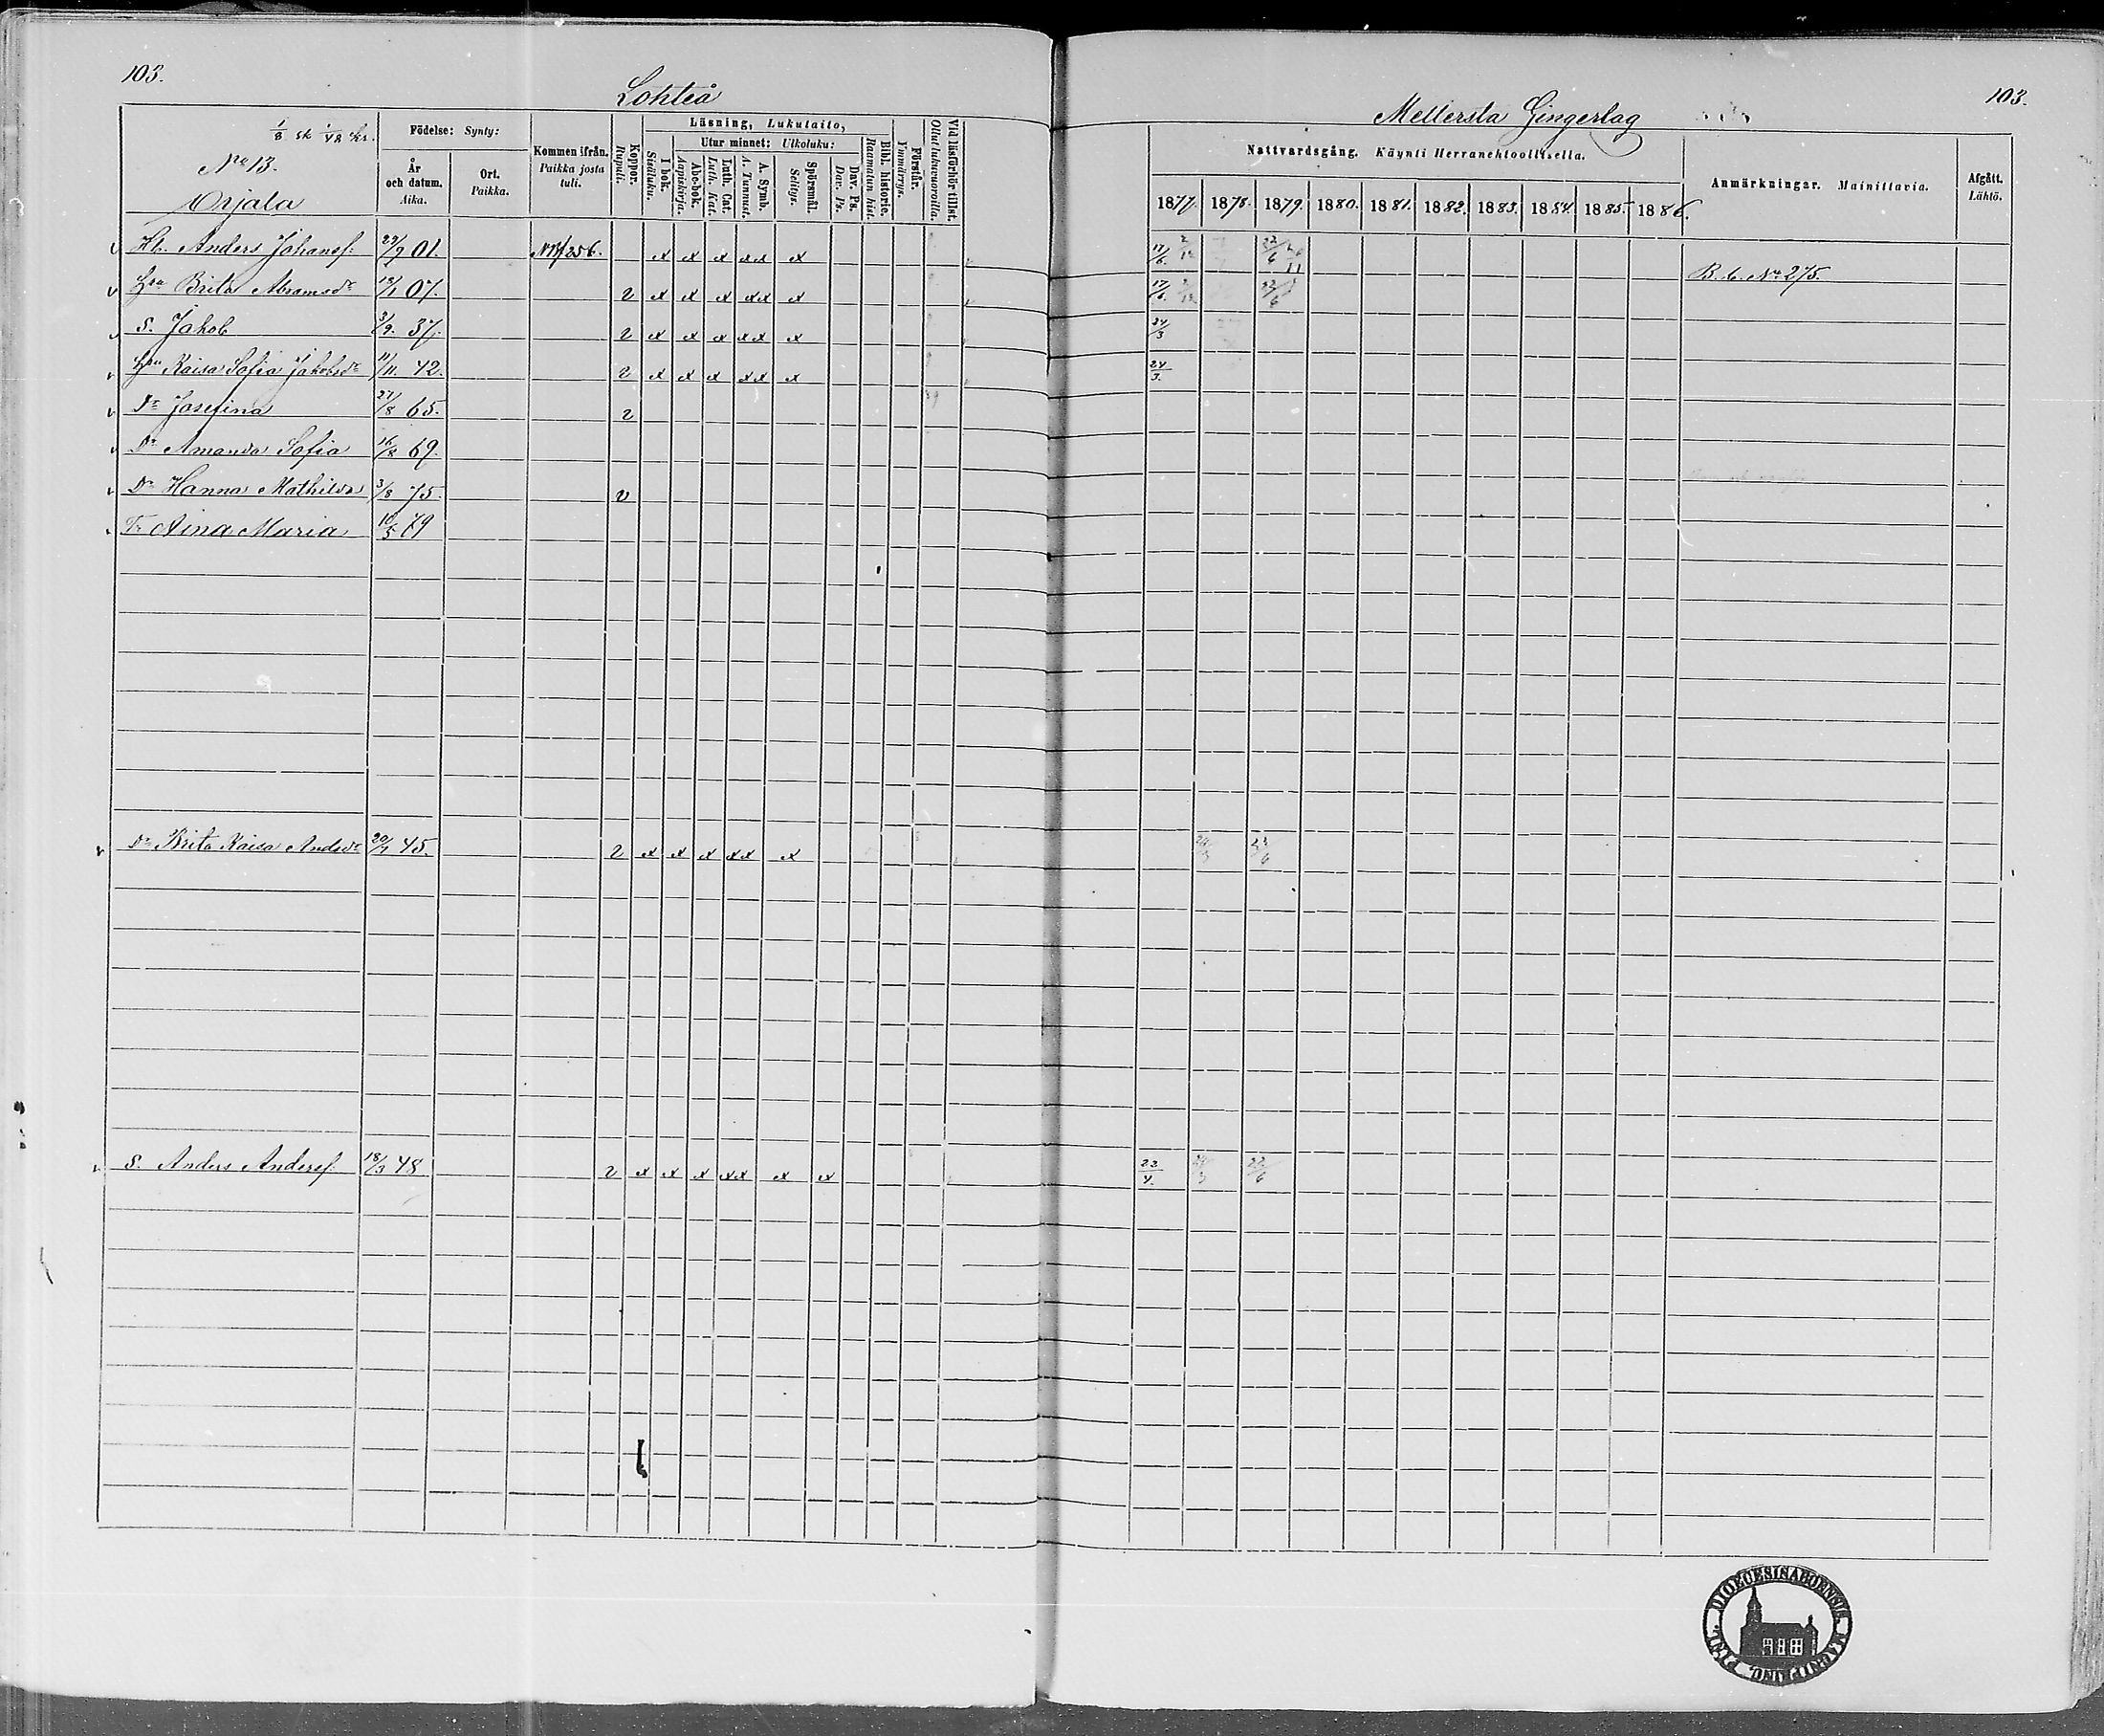 103.
Lohteå
1/8 sk 1/48 kr.
No 13.
Orjala
Födelse: Synty:
År och datum. Aika.
Ort. Paikka.
Kommen ifrån. Paikka josta tuli.
Koppor. Rupuli.
Läsning, Lukutaito,
I bok. Sisäluku.
Utur minnet: Ulkoluku:
Abc-bok. Aapiskirja.
Luth. Cat. Luth. Kat.
A. Symb. A. Tunnust.
Spörsmål. Selitys.
Dav. Ps. Dav. Ps.
Bibl. historie. Raamatun hist.
Förstår. Ymmärrys.
Vid läsförhör tillst. Ollut lukuvuoroilla.
v Hb. Anders Johansf: 29/9 01. 256. x x x xx x
v Hu Brita Abramsdr 18/1 07. v x x x xx x
S. Jakob 3/9. 37. v x x x xx x
v Hu Kaisa Sofia Jakobsdr 11/11. 42. v x x x xx x
v Dr Josefina 27/8 65. v
v Dr Amanda Sofia 16/8 69.
v Dr Hanna Mathilda 3/8 75. v
Tr Aina Maria 10/5 79
v Dr Brita Kaisa Andsdr 20/7 45. v x x x xx x
v S. Anders Andersf. 18/3 48 v x x x xx x x
Mellersta Gingerlag
103.
Nattvardsgång. Käynti Herranehtoollisella.
1877. 1878. 1879. 1880. 1881. 1882. 1883. 1884. 1885. 1886.
Anmärkningar. Mainittavia.
Afgått. Lähtö.
17/6. 2/12 22/6 2/11
B. b. No 275.
17/6. 2/12 22/6
24/3
24/3.
24/3 22/6
22/4. 24/3 22/6
DIOECESIS ABOENSIS MAGNI PRINC. FINL.